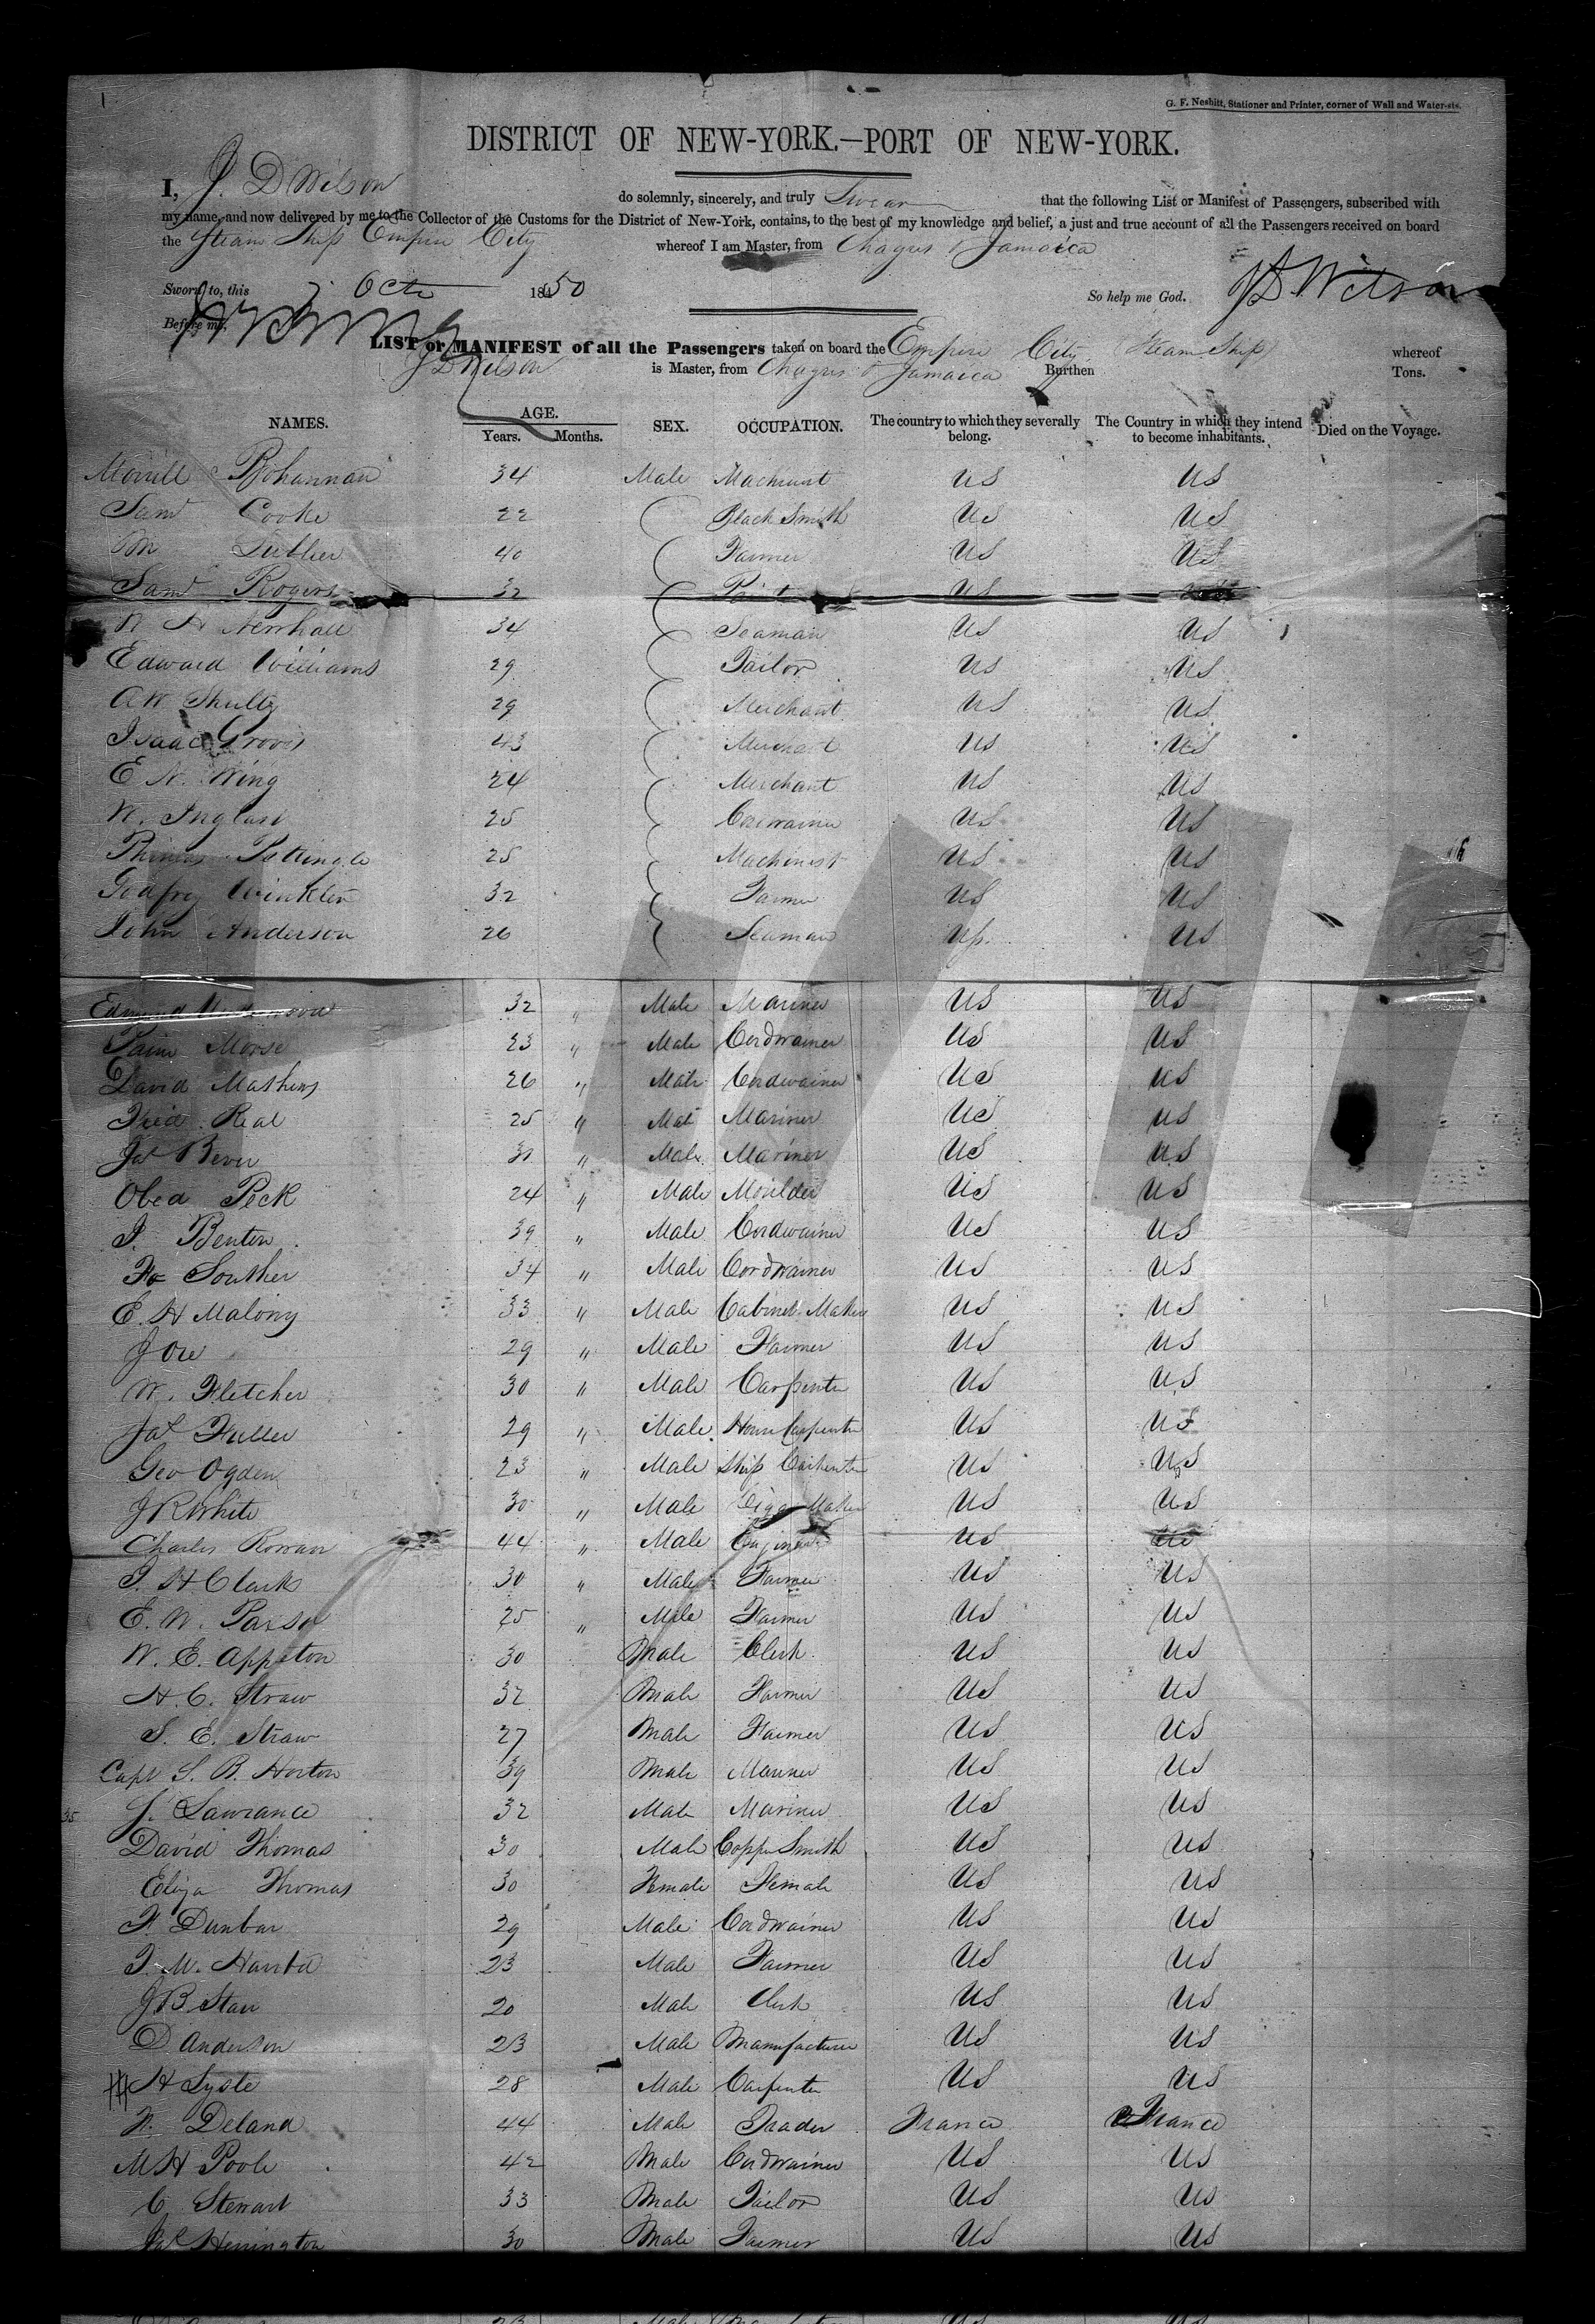 G. F. Nesbitt, Stationer and Printer, corner of Wall and Water-sts.
DISTRICT OF NEW-YORK.—PORT OF NEW-YORK.
I, J. D Wilson do solemnly, sincerely, and truly Swear that the following List or Manifest of Passengers, subscribed with
my name, and now delivered by me to the Collector of the Customs for the District of New-York, contains, to the best of my knowledge and belief, a just and true account of all the Passengers received on board
the Steam Ship Empire City whereof I am Master, from Chagres & Jamaica
Sworn to, this 7 Octr 1850 So help me God. J D Wilson
Before me,
LIST or MANIFEST of all the Passengers taken on board the Empire City Steam Ship whereof
J D Wilson is Master, from Chagres & Jamaica Burthen Tons.
NAMES. AGE. Years. Months. SEX. OCCUPATION. The country to which they severally belong. The Country in which they intend to become inhabitants. Died on the Voyage.
Morrill Bohannan 34 Male Machinist US US
Saml Cooke 22 Black Smith US US
40 Farmer US US
Saml Rogers 32 US
34 Seaman US US
Edward Williams 29 Tailor US US
A W Shultz 29 Merchant US US
Isaac Groves 43 Merchant US US
E N. Wing 24 Merchant US US
W. 25 Cordwainer US US
25 Machinist US US
Godfrey Winkler 32 Farmer US US
John Anderson 26 Seaman US US
Edmund 32 " Male Mariner US US
Morse 23 " Male Cordwainer US US
David Mathews 26 " Male Cordwainer US US
Fred Real 25 " Male Mariner US US
Jas Bever " Male Mariner US US
Obed Peck 24 " Male Moulder US US
J. Benton 39 " Male Cordwainer US US
Souther 34 " Male Cordwainer US US
E. H Malony 33 " Male Cabinet Maker US US
29 " Male Farmer US US
W. Fletcher 30 " Male Carpenter US US
Jas Fuller 29 " Male House Carpenter US US
Geo Ogden 23 " Male Ship Carpenter US US
J R White 30 " Male Maker US US
Charles Rowan 44 " Male US US
J. H Clark 30 " Male Farmer US US
E. W. 25 " Male Farmer US US
W. E. Appleton 30 Male Clerk US US
H. C. Straw 32 Male Farmer US US
S. E. Straw 27 Male Farmer US US
Capt S. B. Horton 39 Male Mariner US US
35 J. Lawrance 32 Male Mariner US US
David Thomas 30 Male Copper Smith US US
Eliza Thomas 30 Female Female US US
F. Dunbar 29 Male Cordwainer US US
23 Male Farmer US US
J B Starr 20 Male Clerk US US
D Anderson 23 Male Manufacturer US US
H Lyste 28 Male Carpenter US US
Deland 44 Male Trader France France
M H Poole 42 Male Cordwainer US US
C Stewart 33 Male Tailor US US
Jas Herrington 30 Male Farmer US US